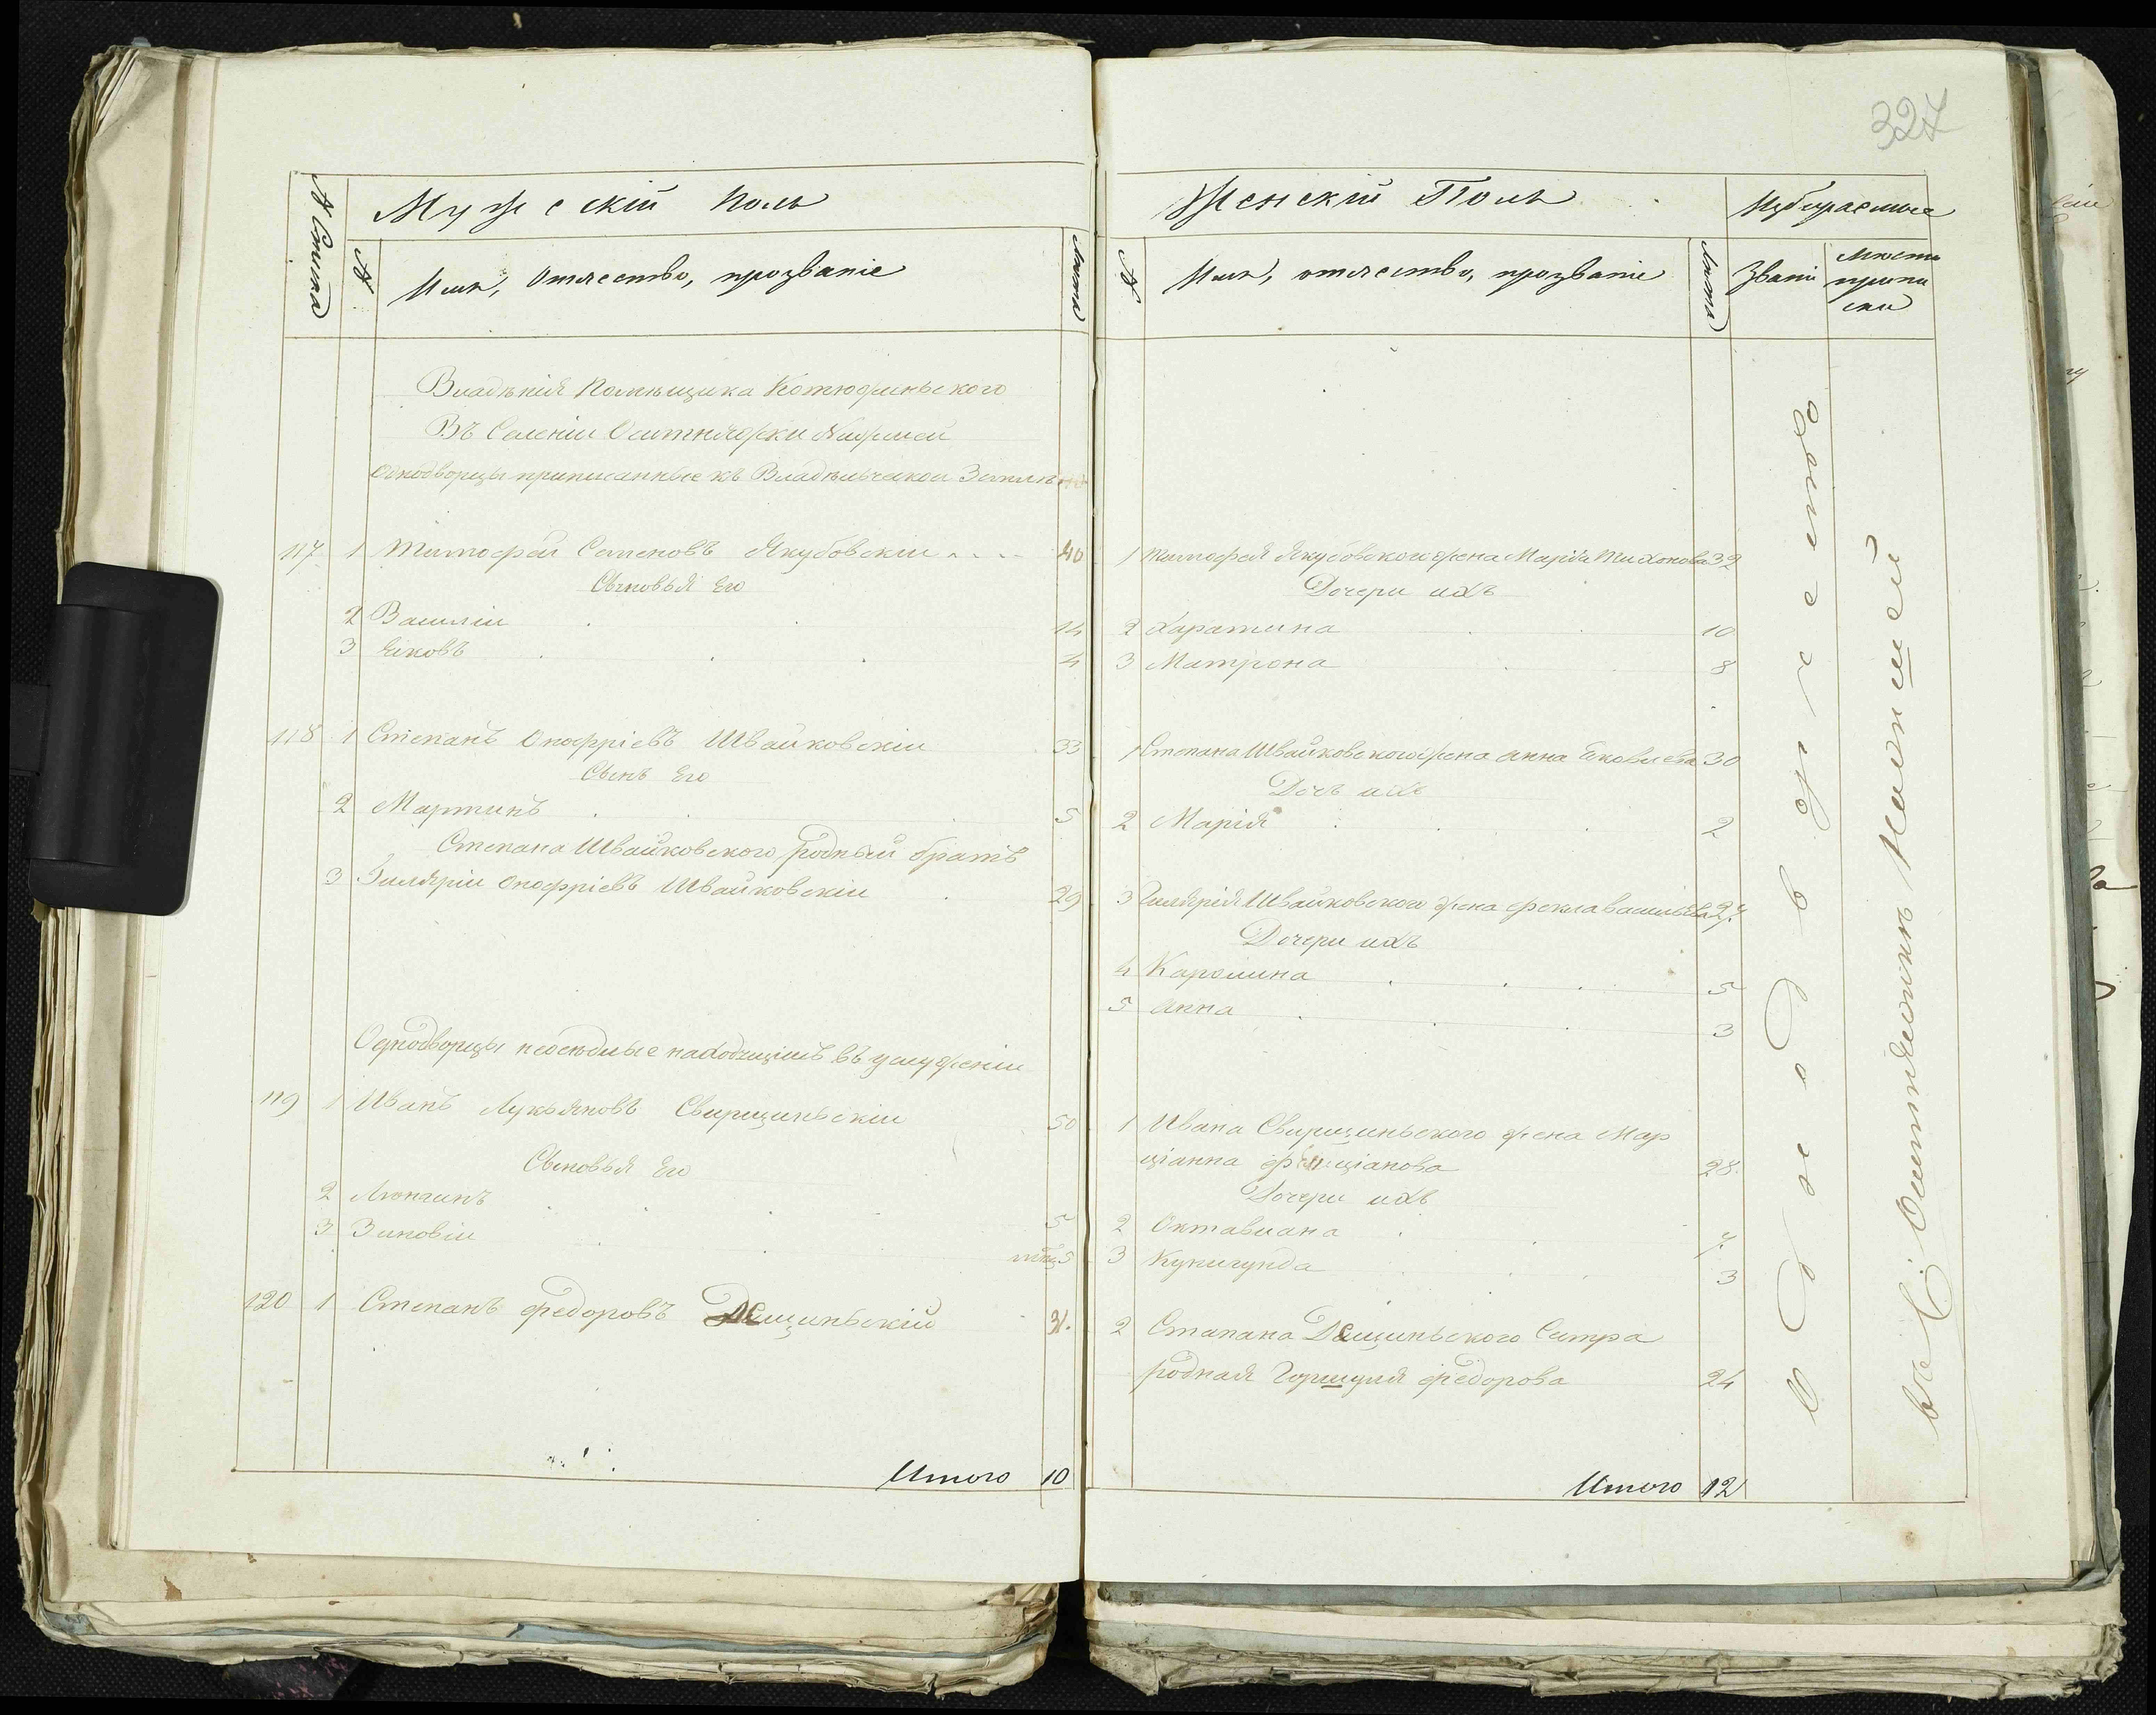 327
№ Списка
Мужескій Полъ
№
Имя, Отчество, прозваніе
Лѣта
Владѣнія Помѣщика Котюжиньского
Въ Селеніи
Однодворцы приписанные къ Владѣльческой Землѣ
117 1 Тимофей Семеновъ Якубовскій 40
Сыновья Его
2 Василій 14
3 Яковъ 4
118 1 Степанъ Онофріевъ Швайковскій 33
Сынъ Его
2 Мартинъ 5
Степана Швайковского родный братъ
3 Гиляріи Онофріевъ Швайковскій 29
Однодворцы неоседлые находящіись въ услуженіи
119 1 Иванъ Лукьяновъ Свирщиньскій 50
Сыновья Его
2 Люнгинъ 5
3 Зиновіи 5
120 1 Степанъ Федоровъ Дещиньскій 31.
Итого 10
Женскій Полъ
Избираемые
№
Имя, отчество, прозваніе
Лѣта
Званіи
Мѣсто
припи
ски
1 Тимофея Якубовского жена Марія Тихонова 32
Дочери ихъ
2 Харатина 10
3 Матрона 8
1 Степана Швайковского жена Анна Яковлева 30
Дочь ихъ
2 Марія 2
3 Гилярія Швайковского жена Фекла Васильева 27
Дочери ихъ
4 Каролина 5
5 Анна 3
1 Ивана Свирщиньского жена Мар
ціанна 28.
Дочери ихъ
2 Октавиана 7.
3 Кунигунда 3
2 Стапана Дещиньского Систра
родная Федорова 24
Итого 12
Однодворчество
въ С: